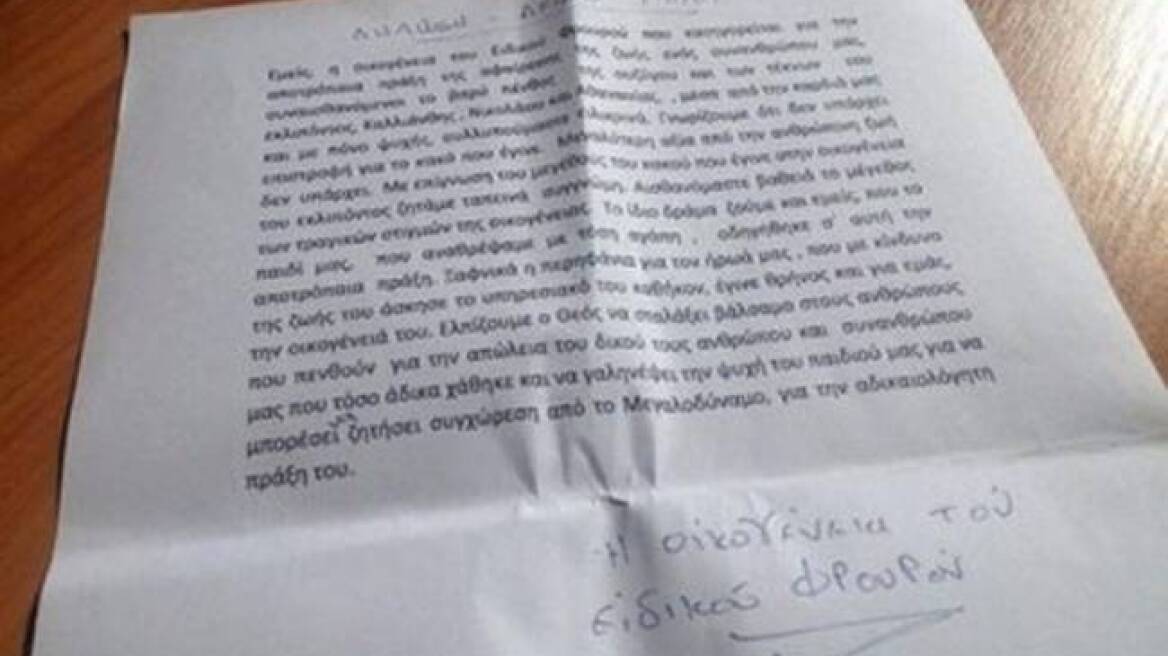 ΔΗΛΩΣΗ -
Εμείς, η οικογένεια του Ειδικού Φρουρού που κατηγορείται για την
αποτρόπαια πράξη της αφαίρεσης της ζωής ενός συνανθρώπου μας,
συναισθανόμενοι το βαρύ πένθος της συζύγου και των τέκνων του
εκλιπόντος, Καλλιάνθης, Νικολάου και Αθανασίας, , μέσα από την καρδιά μας
και με πόνο ψυχής, συλλυπούμαστε ειλικρινά. Γνωρίζουμε ότι δεν υπάρχει
επιστροφή για το κακό που έγινε. Μεγαλύτερη αξία από την ανθρώπινη ζωή
δεν υπάρχει. Με επίγνωση του μεγέθους του κακού που έγινε στην οικογένεια
του εκλιπόντος ζητάμε ταπεινά συγγνώμη. Αισθανόμαστε βαθειά το μέγεθος
των τραγικών στιγμών της οικογένειας. Το ίδιο δράμα ζούμε και εμείς, που το
παιδί μας, που αναθρέψαμε με τόση αγάπη , οδηγήθηκε σ' αυτή την
αποτρόπαια πράξη. Ξαφνικά η περηφάνια για τον ήρωά μας , που με κίνδυνο
της ζωής του άσκησε το υπηρεσιακό του καθήκον, έγινε θρήνος και για εμάς,
την οικογένειά του. Ελπίζουμε ο Θεός να σταλάξει βάλσαμο στους ανθρώπους
που πενθούν για την απώλεια του δικού τους ανθρώπου και συνανθρώπου
μας που τόσο άδικα χάθηκε και να γαληνέψει την ψυχή του παιδιού μας για να
μπορέσει να ζητήσει συγχώρεση από το Μεγαλοδύναμο, για την αδικαιολόγητη
πράξη του.
Η οικογένεια τού
ειδικού φρουρού